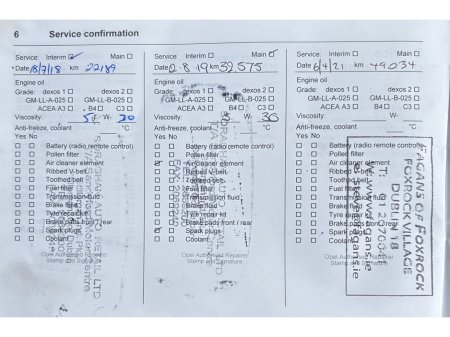 6 Service confirmation
Service: Interim ☑ Main ☐
Date 18/7/18 km 22189
Engine oil
Grade: dexos 1 ☐ dexos 2 ☐
GM-LL-A-025 ☐ GM-LL-B-025 ☐
ACEA A3 ☐ B4 ☐ C3 ☐
Viscosity 5 W- 30
Anti-freeze, coolant °C
Yes No
☐ ☐ Battery (radio remote control)
☐ ☐ Pollen filter
☐ ☐ Air cleaner element
☐ ☐ Ribbed V-belt
☐ ☐ Toothed belt
☐ ☐ Fuel filter
☐ ☐ Transmission fluid
☐ ☐ Brake fluid
☐ ☐ Tyre repair kit
☐ ☐ Brake pads front / rear
☐ ☐ Spark plugs
☐ ☐ Coolant
Opel Authorised Repairer
Stamp and Signature
Service: Interim ☐ Main ☑
Date 2.8.19 km 32,575
Engine oil
Grade: dexos 1 ☐ dexos 2 ☐
GM-LL-A-025 ☐ GM-LL-B-025 ☐
ACEA A3 ☐ B4 ☐ C3 ☐
Viscosity W- 30
Anti-freeze, coolant °C
Yes No
☐ ☐ Battery (radio remote control)
☐ ☐ Pollen filter
☑ ☐ Air cleaner element
☐ ☐ Ribbed V-belt
☐ ☐ Toothed belt
☐ ☐ Fuel filter
☐ ☐ Transmission fluid
☐ ☐ Brake fluid
☐ ☐ Tyre repair kit
☐ ☐ Brake pads front / rear
☑ ☐ Spark plugs
☐ ☐ Coolant
Opel Authorised Repairer
Stamp and Signature
Service: Interim ☐ Main ☐
Date 6/4/21 km 49034
Engine oil
Grade: dexos 1 ☐ dexos 2 ☐
GM-LL-A-025 ☐ GM-LL-B-025 ☐
ACEA A3 ☐ B4 ☐ C3 ☐
Viscosity W-
Anti-freeze, coolant °C
Yes No
☐ ☐ Battery (radio remote control)
☐ ☐ Pollen filter
☐ ☐ Air cleaner element
☐ ☐ Ribbed V-belt
☐ ☐ Toothed belt
☐ ☐ Fuel filter
☐ ☐ Transmission fluid
☐ ☐ Brake fluid
☐ ☐ Tyre repair kit
☐ ☐ Brake pads front / rear
☐ ☐ Spark plugs
☐ ☐ Coolant
Opel Authorised Repairer
Stamp and Signature
FAGANS OF FOXROCK
FOXROCK VILLAGE
DUBLIN 18